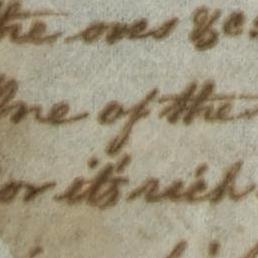 the ores &c.
One of the
or it's rich